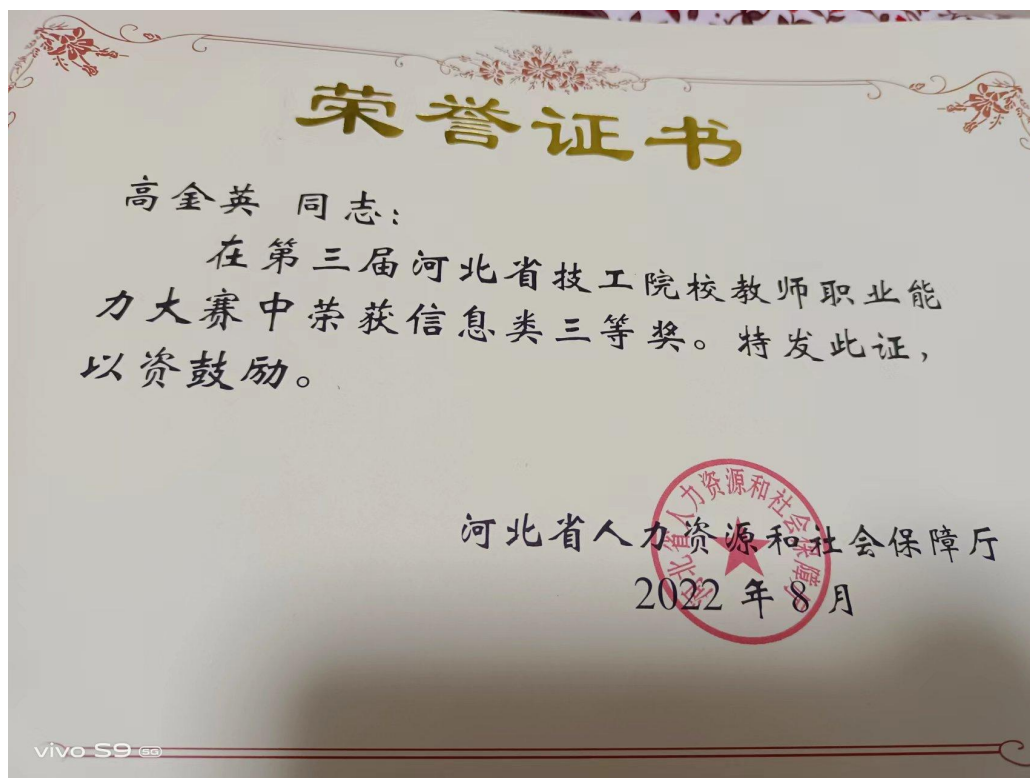 荣誉证书
高金英 同志：
在第三届河北省技工院校教师职业能
力大赛中荣获信息类三等奖。特发此证，
以资鼓励。
河北省人力资源和社会保障厅
河北省人力资源和社会保障厅
2022 年 8 月
vivo S9 5G